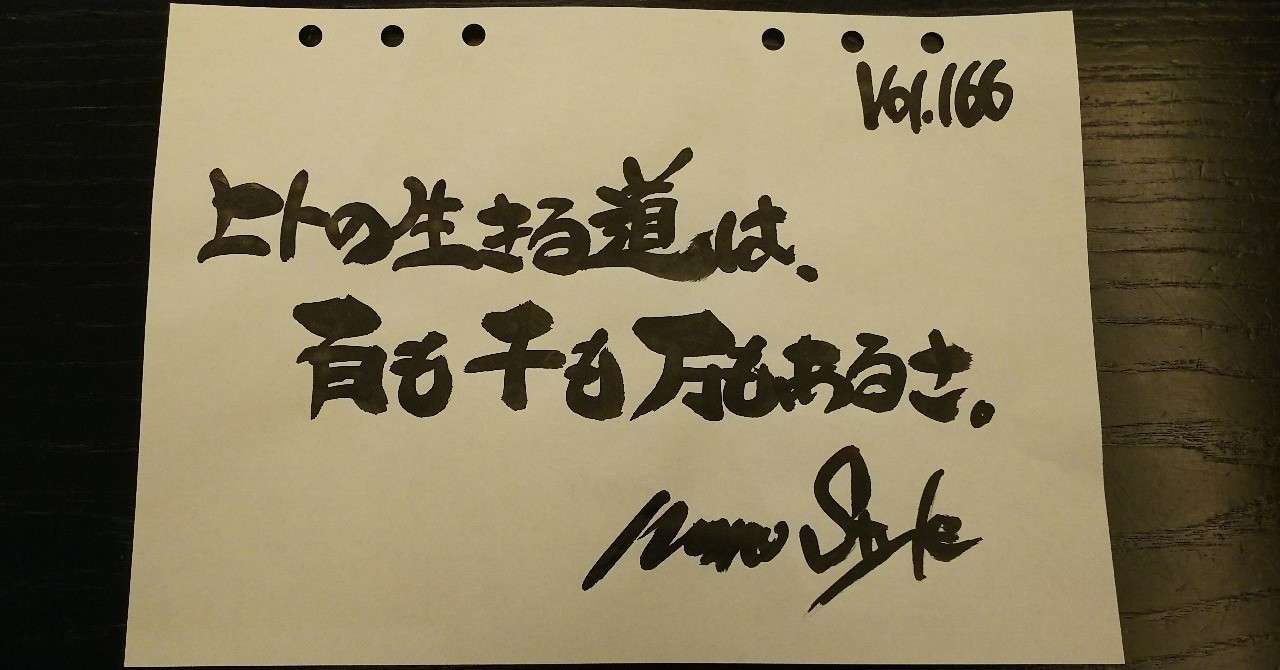 Vol.166
ヒトの生きる道は、
百も千も万もあるさ。
Style